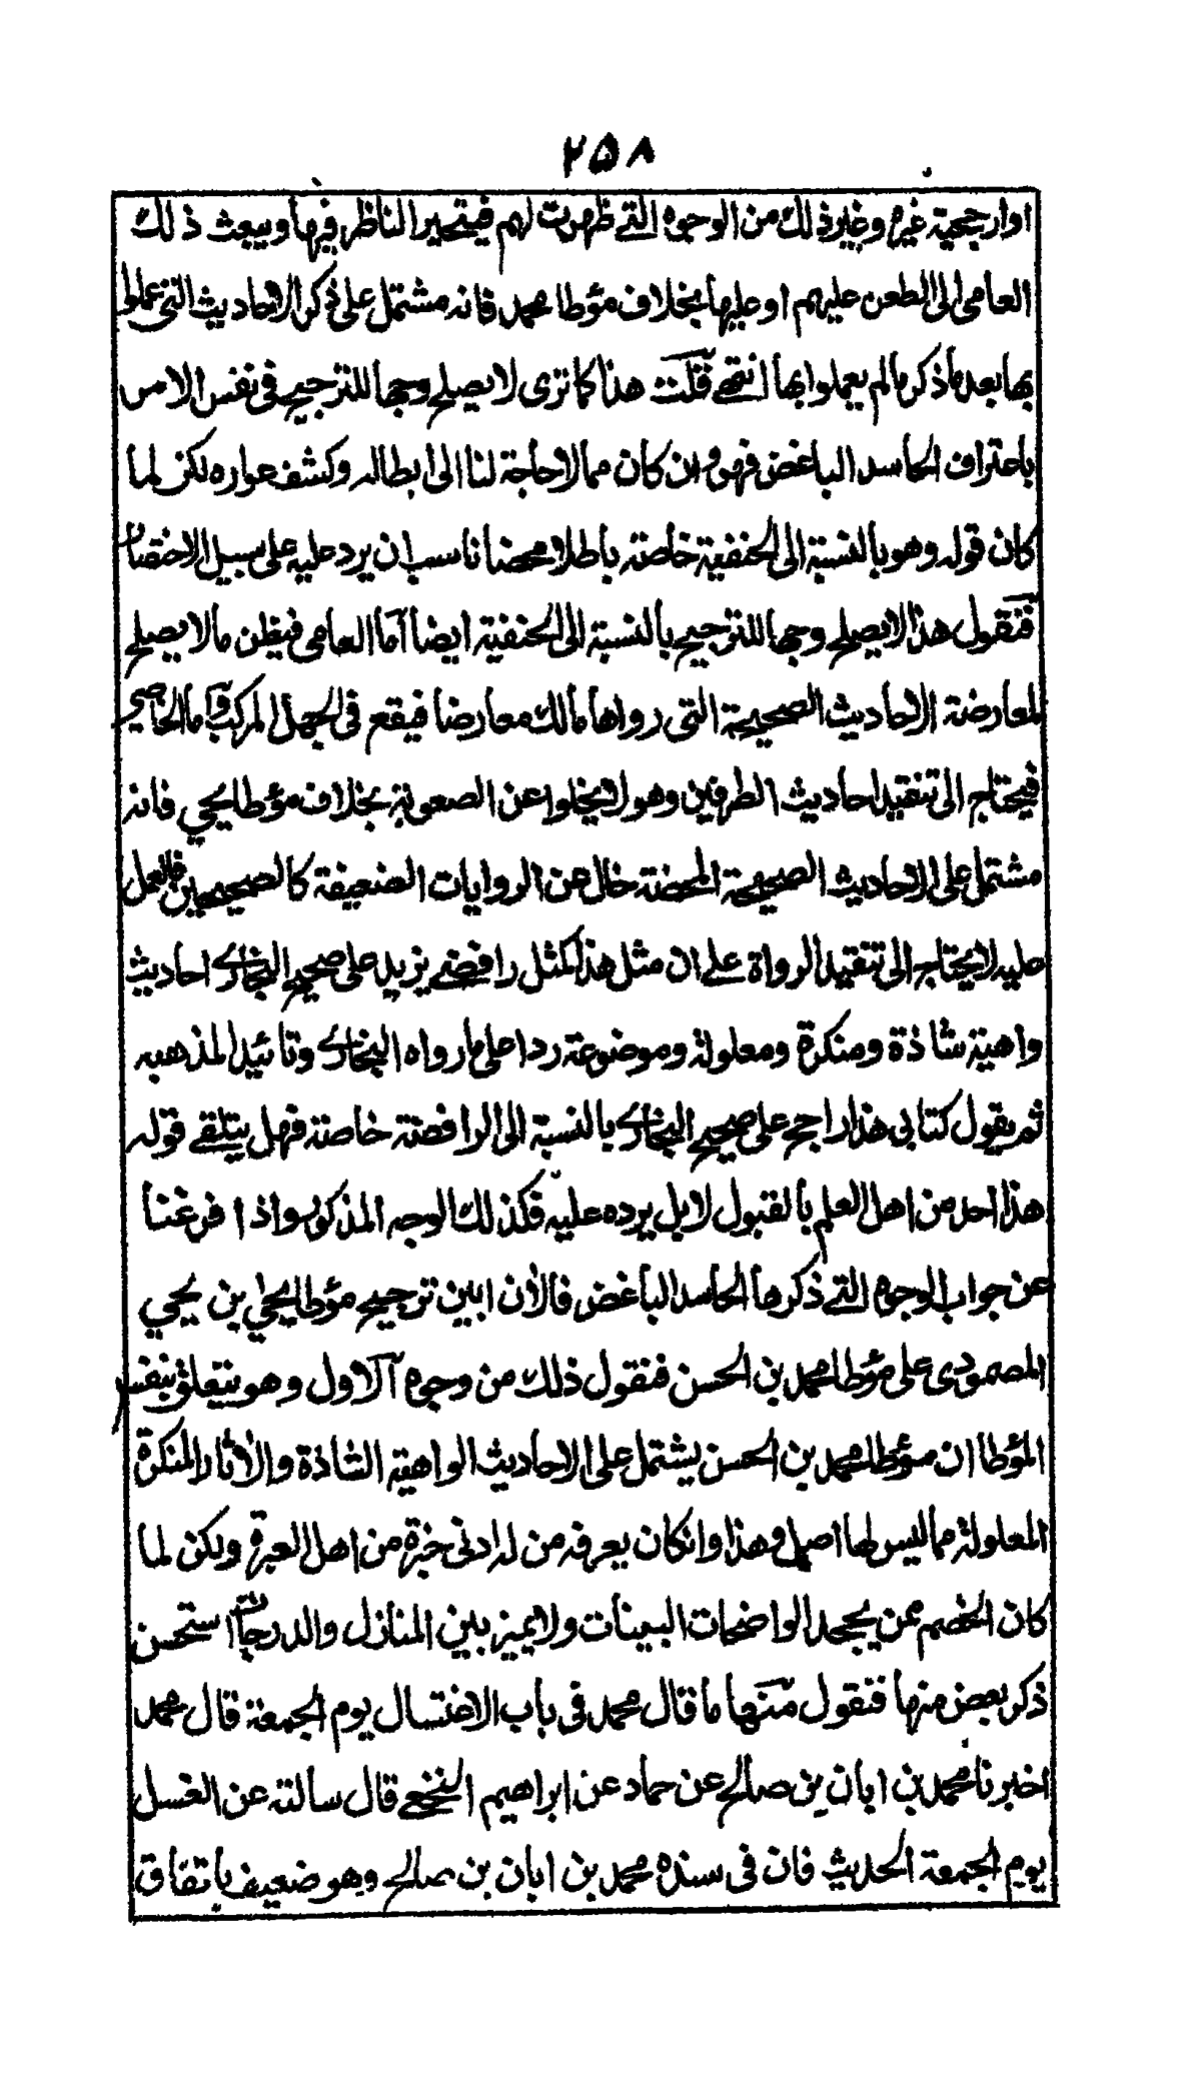 ٢٥٨
اوارجحية غيره وغير ذلك من الوجوه التے ظهرت لهم فيتحير الناظر فيها ويبعث ذلك
العامى الى الطعن عليهم او عليها بخلاف مؤطا محمد فانه مشتمل على ذكر الاحاديث التى عملوا
بها بعد ما ذكر مالم يعملوا بها انتهے قلت هذا كما ترى لا يصلح وجها للترجيح فى نفس الامر
باعتراف الحاسد الباغض فهو وان كان مما لا حاجة لنا الى ابطاله وكشف عواره لكن لما
كان قوله وهو بالنسبة الى الحنفية خاصة باطلا محضا ناسب ان يرد عليه على سبيل الاختصار
فنقول هذا لا يصلح وجها للترجيح بالنسبة الى الحنفية ايضا اما العامى فيظن مالا يصلح
لمعارضة الاحاديث الصحيحة التى رواها مالك معارضا فيقع فى الجهل المركب واما الخاصى
فيحتاج الى تنقيد احاديث الطرفين وهو لا يخلوا عن الصعوبة بخلاف مؤطا يحيى فانه
مشتمل على الاحاديث الصحيحة المحضة خال عن الروايات الضعيفة كالصحيحين فالعمل
عليه لا يحتاج الى تنقيد الرواة علے ان مثل هذا كمثل رافضے يزيد على صحيح البخارے احاديث
واهية شاذة ومنكرة ومعلولة وموضوعة ردا على ما رواه البخارے وتائيدا لمذهبه
ثم يقول كتابى هذا راجح على صحيح البخارے بالنسبة الى الرافضة خاصة فهل يتلقے قوله
هذا احد من اهل العلم بالقبول لا بل يرده عليه فكذلك الوجه المذكور واذا فرغنا
عن جواب الوجوه التے ذكرها الحاسد الباغض فالان ابين ترجيح مؤطا يحيى بن يحيى
المصمودى على مؤطا محمد بن الحسن فنقول ذلك من وجوه الاول وهو يتعلق بنفس
المؤطا ان مؤطا محمد بن الحسن يشتمل على الاحاديث الواهية الشاذة والاثار المنكرة
المعلولة مما ليس لها اصل وهذا وانكان يعرفه من له ادنى خبرة من اهل العبرة ولكن لما
كان الخصم ممن يجحد الواضحات البينات ولا يميز بين المنازل والدرجات استحسن
ذكر بعض منها فنقول منها ما قال محمد فى باب الاغتسال يوم الجمعة قال محمد
اخبرنا محمد بن ابان بن صالح عن حماد عن ابراهيم النخعے قال سالته عن الغسل
يوم الجمعة الحديث فان فى سنده محمد بن ابان بن صالح وهو ضعيف باتفاق